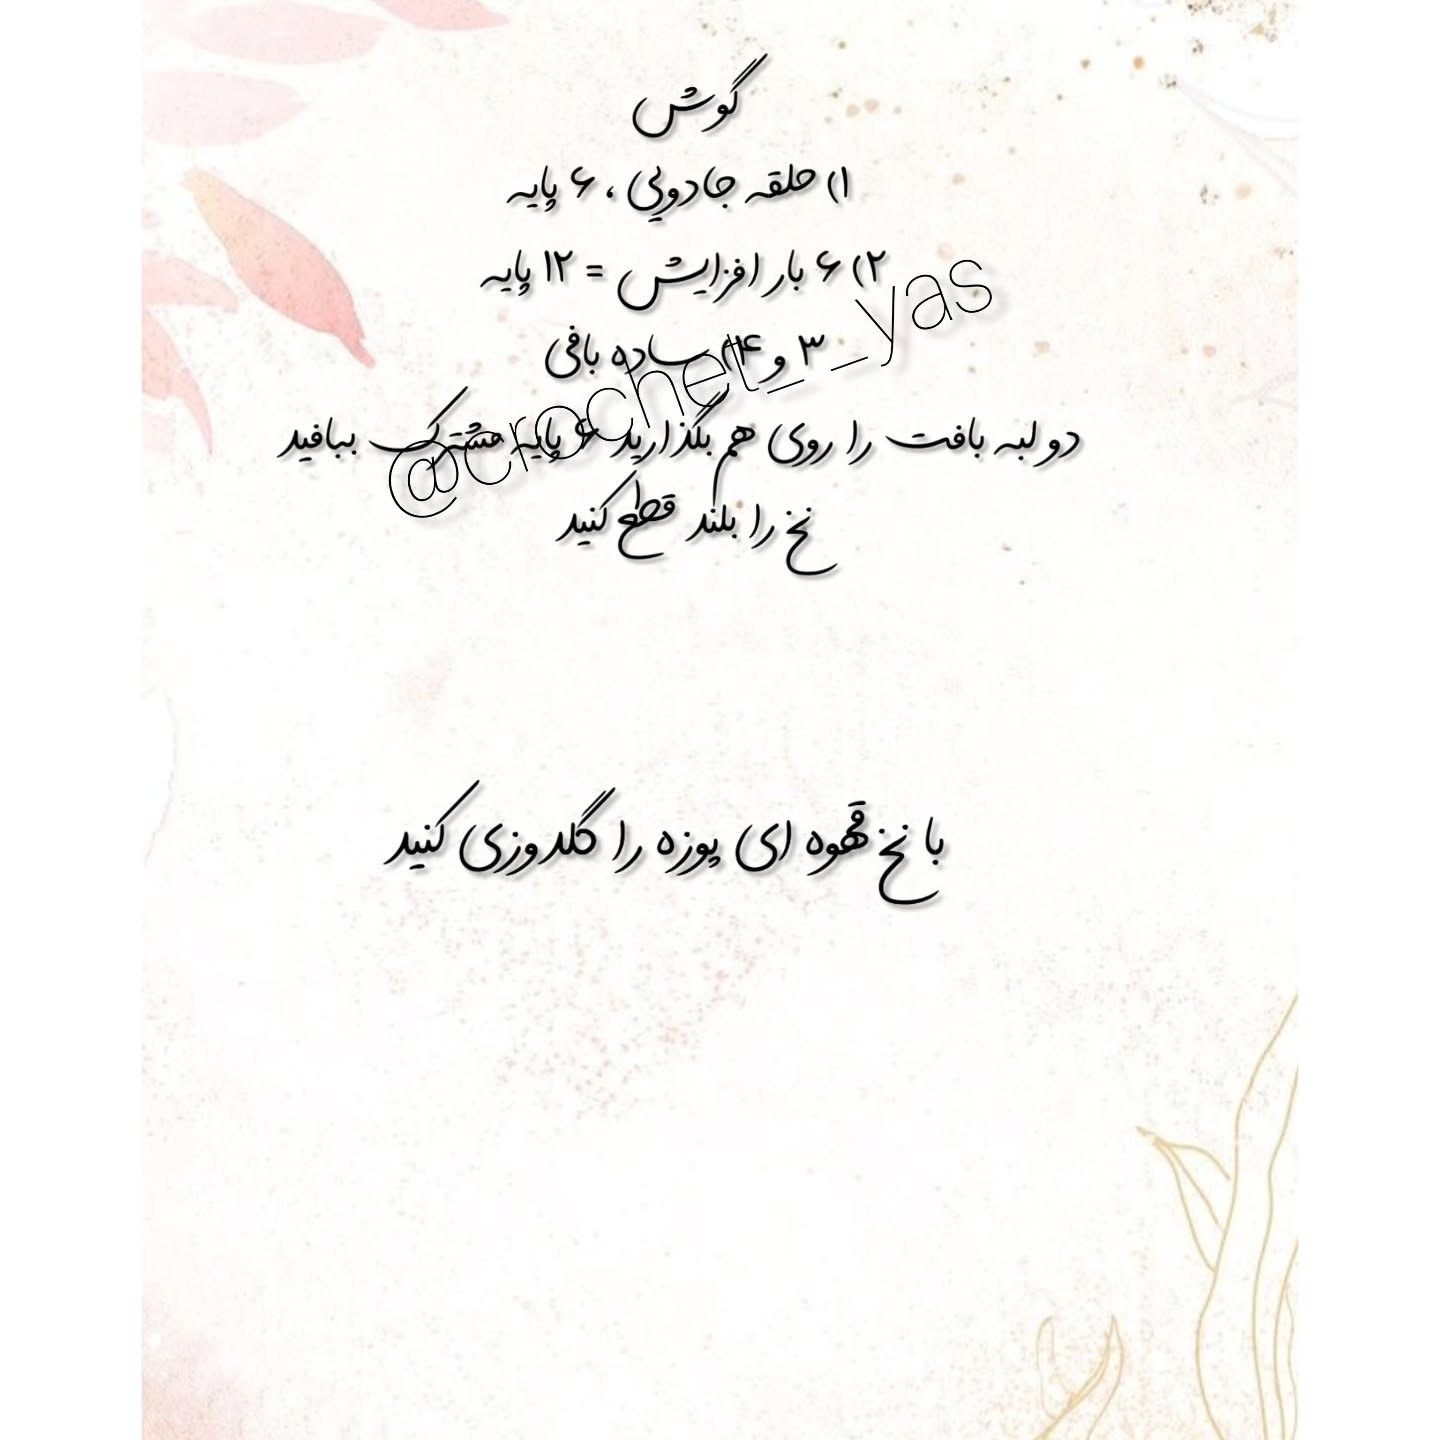 گوش
۱) حلقه جادویی ، ۶ پایه
۲) ۶ بار افزایش = ۱۲ پایه
۳ و ۴) ساده بافی
دو لبه بافت را روی هم بگذارید ۶ پایه مشترک ببافید
نخ را بلند قطع کنید
@crochet__yas
با نخ قهوه ای پوزه را گلدوزی کنید